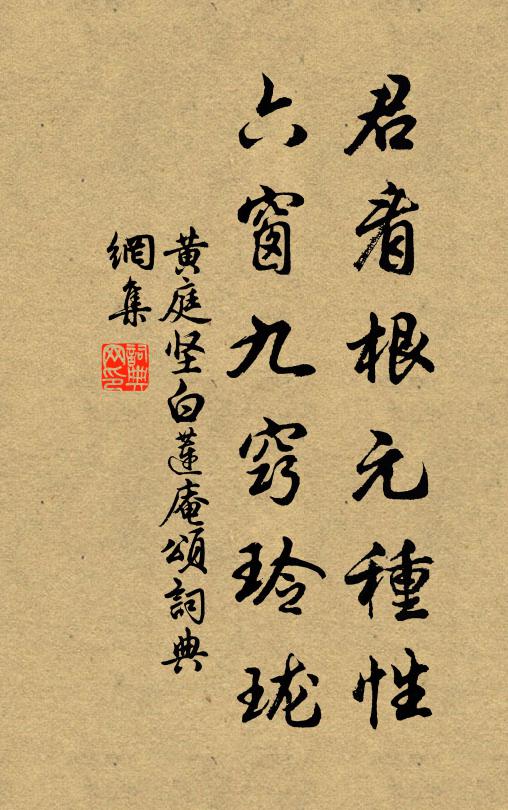 君看根元種性
六窗九竅玲瓏
黄庭坚白蓮庵頌詞典
網集
詞典
网印